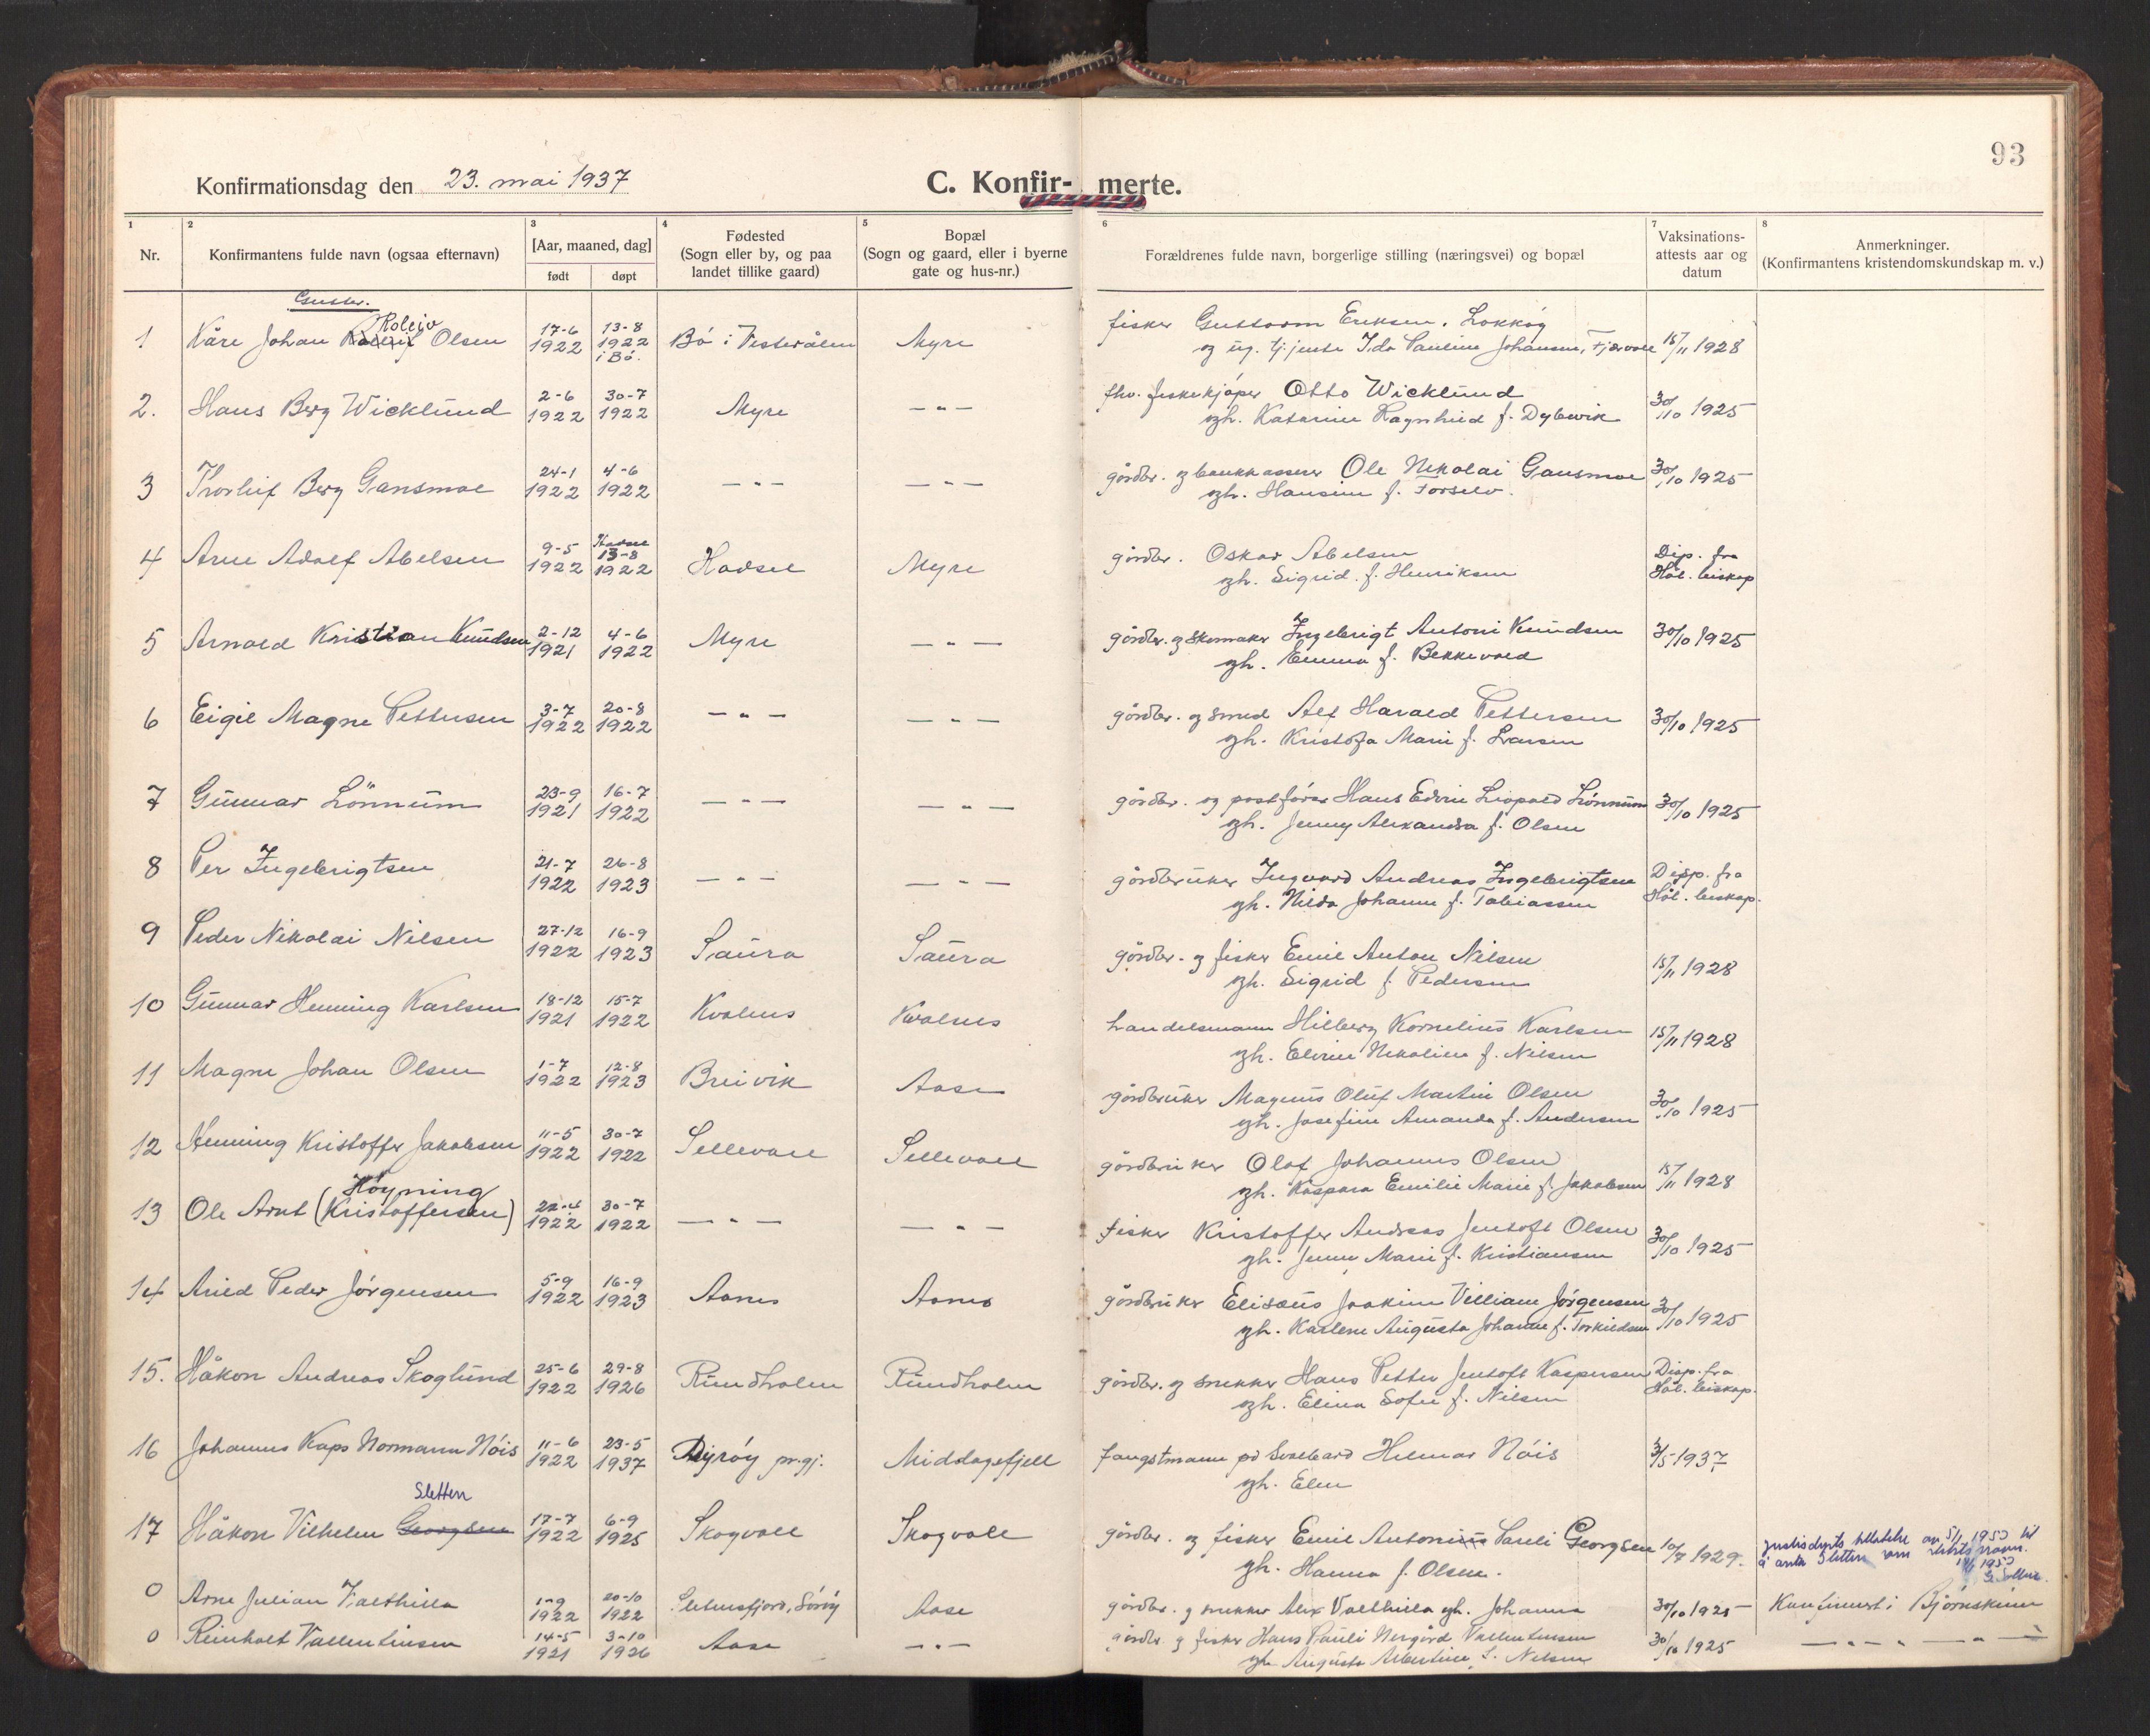 93
Konfirmationsdag den 23. mai 1937
C. Konfir- merte.
1 2 3 4 5 6 7 8
Nr. Konfirmantens fulde navn (ogsaa efternavn) [Aar, maaned, dag] født døpt Fødested (Sogn eller by, og paa landet tillike gaard) Bopæl (Sogn og gaard, eller i byerne gate og hus-nr.) Forældrenes fulde navn, borgerlige stilling (næringsvei) og bopæl Vaksinations-attests aar og datum Anmerkninger. (Konfirmantens kristendomskundskap m. v.)
Roleiv
1 Kåre Johan Olsen 17-6 1922 13-8 1922 i Bø. Bø i Vesterålen Myre fisker Gustavm Eriksen, Lokkøy
og ug. tj.jente Ida Pauline Johansen, Fjærvoll 15/11 1928
2. Hans Berg Wicklund 2-6 1922 30-7 1922 Myre — " — fhv. fiskekjøper Otto Wicklund
gh. Katarine Ragnhild f. Dybwik 30/10 1925
3 Thorleif Berg Gansmoe 24-1 1922 4-6 1922 — " — — " — gårdbr. og bankkasserer Ole Nikolai Gansmoe
gh. Hansine f. Forselv. 30/10 1925
4 Arne Adolf Abelsen 9-5 1922 Hadsel 13-8 1922 Hadsel Myre gårdbr. Oskar Abelsen
gh. Sigrid f. Henriksen Disp. fra Hål. biskop
5 Arnold Kristian Knudsen 2-12 1921 4-6 1922 Myre — " — gårdbr. og skomaker Ingebrigt Antoni Knudsen
gh. Emma f. Bekkevold 30/10 1925
6 Eigil Magne Pettersen 3-7 1922 20-8 1922 — " — — " — gårdbr. og smed Alf Harald Pettersen
gh. Kristofa Marie f. Larsen 30/10 1925
7 Gunnar Lönnum 23-9 1921 16-7 1922 — " — — " — gårdbr. og postfører Hans Edvin Liopold Lönnum
gh. Jenny Alexandra f. Olsen 30/10 1925
8 Per Ingebrigtsen 21-7 1922 26-8 1923 — " — — " — gårdbruker Ingvard Andreas Ingebrigtsen
gh. Hilda Johanne f. Tobiassen Disp. fra Hål. biskop.
9 Peder Nikolai Nilsen 27-12 1922 16-9 1923 Saura Saura gårdbr. og fisker Emil Anton Nilsen
gh. Sigrid f. Pedersen 15/11 1928
10 Gunnar Henning Karlsen 18-12 1921 15-7 1922 Kvalnes Kvalnes handelsmann Hilberg Kornelius Karlsen
gh. Elvine Nikoline f. Nilsen 15/11 1928
11 Magne Johan Olsen 1-7 1922 12-8 1923 Breivik Aase gårdbruker Magnus Oluf Martin Olsen
gh. Josefine Amanda f. Andersen 30/10 1925
12 Henning Kristoffer Jakobsen 11-5 1922 30-7 1922 Sellevoll Sellevoll gårdbruker Olaf Johannes Olsen
gh. Kaspara Emilie Marie f. Jakobsen 15/11 1928
Høyning
13 Ole Arnt (Kristoffersen) 22-4 1922 30-7 1922 — " — — " — fisker Kristoffer Andreas Jentoft Olsen
gh. Jenny Marie f. Kristiansen 30/10 1925
14 Arild Peder Jørgensen 5-9 1922 16-9 1923 Aanes Aanes gårdbruker Elisæus Joakim Villiam Jørgensen
gh. Karlene Augusta Johanne f. Torkildsen 30/10 1925
15. Håkon Andreas Skoglund 25-6 1922 29-8 1926 Rundholm Rundholm gårdbr. og snekker Hans Petter Jentoft Kaspersen
gh. Elina Sofie f. Nilsen Disp. fra Hål. biskop.
16 Johannes Kaps Normann Nöis 11-6 1922 23-5 1937 Dyrøy pr.gj. Middagsfjell fangstmann på Svalbard Hilmar Nöis
gh. Elen 3/5 1937
Sletten
17 Håkon Vilhelm Georgsen 17-7 1922 6-9 1925 Skogvoll Skogvoll gårdbr. og fisker Emil Antonius Pauli Georgsen
gh. Hanna f. Olsen. 10/7 1929. justisdepts tillatelse av 5/1 1950 til
å anta Sletten som slektsnavn.
0 Arne Julian Valthilla 1-9 1922 20-10 1922 Aase gårdbr. og snekker Alex Valthilla gh. Johanna 30/10 1925 Konfirmert i Bjørnskinn
0 Reinholt Vallentinsen 14-5 1921 3-10 1926 Aase — " — gårdbr. og fisker Hans Pauli Nergård Vallentinsen
gh. Augusta Albertine f. Nilsen 30/10 1925 — " — " — " —